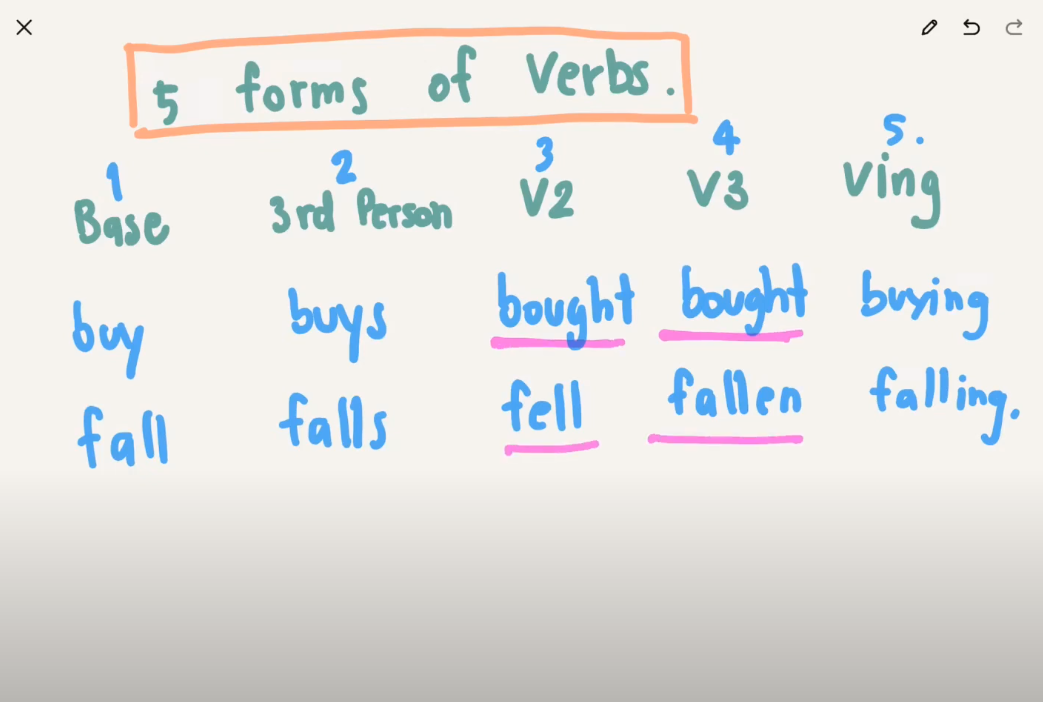 5 forms of Verbs.
1 2 3 4 5.
Base 3rd Person V2 V3 Ving
buy buys bought bought buying
fall falls fell fallen falling.